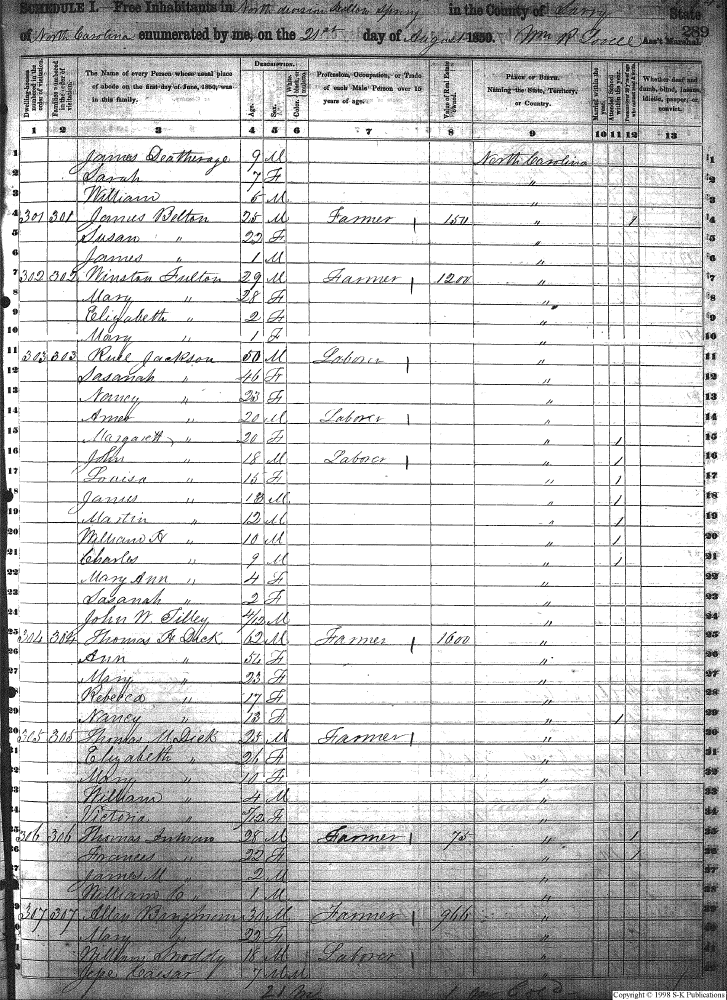 SCHEDULE I. Free Inhabitants in North division in the County of Surry State
of North Carolina enumerated by me, on the 21st day of August 1850. Wm R. Ass't Marshal. 289
Dwelling-houses numbered in the order of visitation.
Families numbered in the order of visitation.
The Name of every Person whose usual place of abode on the first day of June, 1850, was in this family.
DESCRIPTION.
Age.
Sex.
Color.
Profession, Occupation, or Trade of each Male Person over 15 years of age.
Value of Real Estate owned.
PLACE OF BIRTH. Naming the State, Territory, or Country.
Married within the year.
Attended School within the year.
Whether deaf and dumb, blind, insane, idiotic, pauper, or convict.
1 2 3 4 5 6 7 8 9 10 11 12 13
1 James Deatherage 9 M North Carolina 1
2 Sarah 7 F " 2
3 William 5 M " 3
4 301 301 James Belton 25 M Farmer 150 " / 4
5 Susan " 22 F " 5
6 James " 1 M " 6
7 302 302 Winston Fulton 29 M Farmer 1200 " 7
8 Mary " 28 F " 8
9 Elizabeth " 2 F " 9
10 Mary " 1 F " 10
11 303 303 Jackson 50 M Laborer " 11
12 Sasanah " 46 F " 12
13 Nancy " 23 F " 13
14 " 20 M Laborer " 14
15 Margarett " 20 F " / 15
16 John " 18 M Laborer " / 16
17 Louisa " 15 F " / 17
18 James " 13 M " / 18
19 Martin " 12 M " / 19
20 William A " 10 M " / 20
21 Charles " 9 M " / 21
22 Mary Ann " 4 F " 22
23 Sasanah " 2 F " 23
24 John W. Tilley M " 24
25 304 304 Thomas A Dick 62 M Farmer 1600 " 25
26 Ann " F " 26
27 Mary " 23 F " 27
28 Rebecca " 17 F " 28
29 Nancy " 13 F " / 29
30 305 305 Thomas M. Dick 25 M Farmer " 30
31 Elizabeth " 26 F " 31
32 Mary " 10 F " 32
33 William " 4 M " 33
34 Victoria " F " 34
35 306 306 Thomas Inman 28 M Farmer 75 " / 35
36 Frances " 22 F " / 36
37 James M " 2 M " 37
38 William C " 1 M " 38
39 307 307 Alley Bingman 30 M Farmer 966 " 39
40 Mary " 22 F " 40
41 William Snoddy 18 M Laborer " 41
42 Caesar 7 M M " 42
Copyright © 1998 S-K Publications